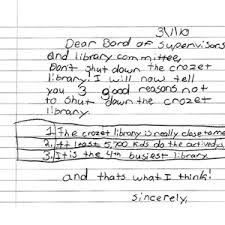 3/1/10
Dear Bord of supervisors
and library committee,
Dont shut down the crozet
library! I will now tell
you 3 good reasons not
to shut down the crozet
library.
1. The crozet library is really close to me
2. At least 5,700 kids do the
3. It is the 4th busiest library
and thats what I think!
sincerely,